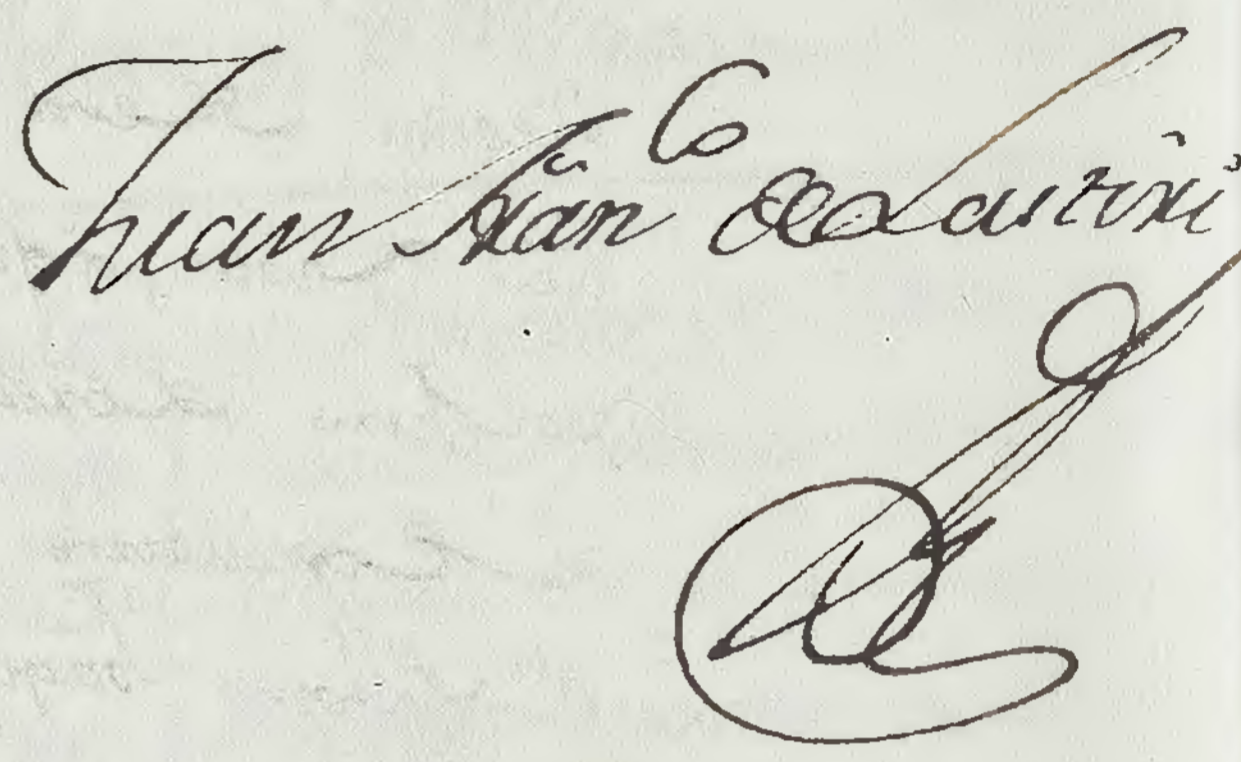 Juan Fran^co de Lastiri